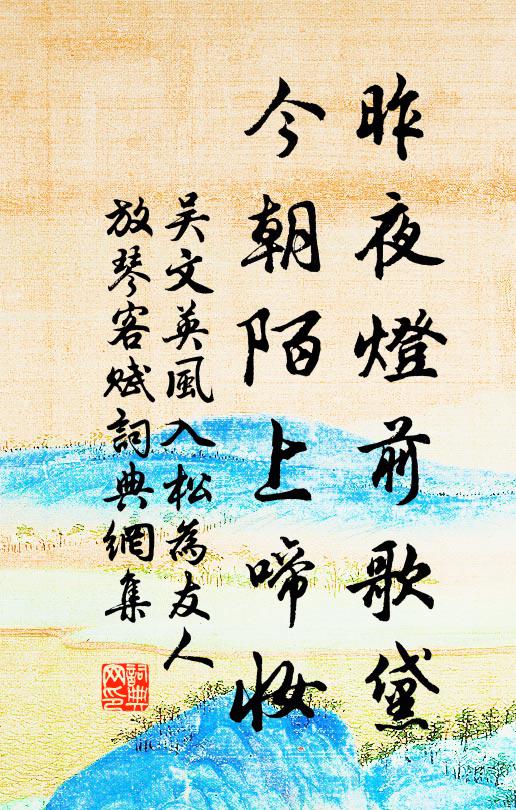 昨夜燈前歌黛
今朝陌上啼妝
吴文英風入松為友人
放琴客賦詞典網集
詞典網印